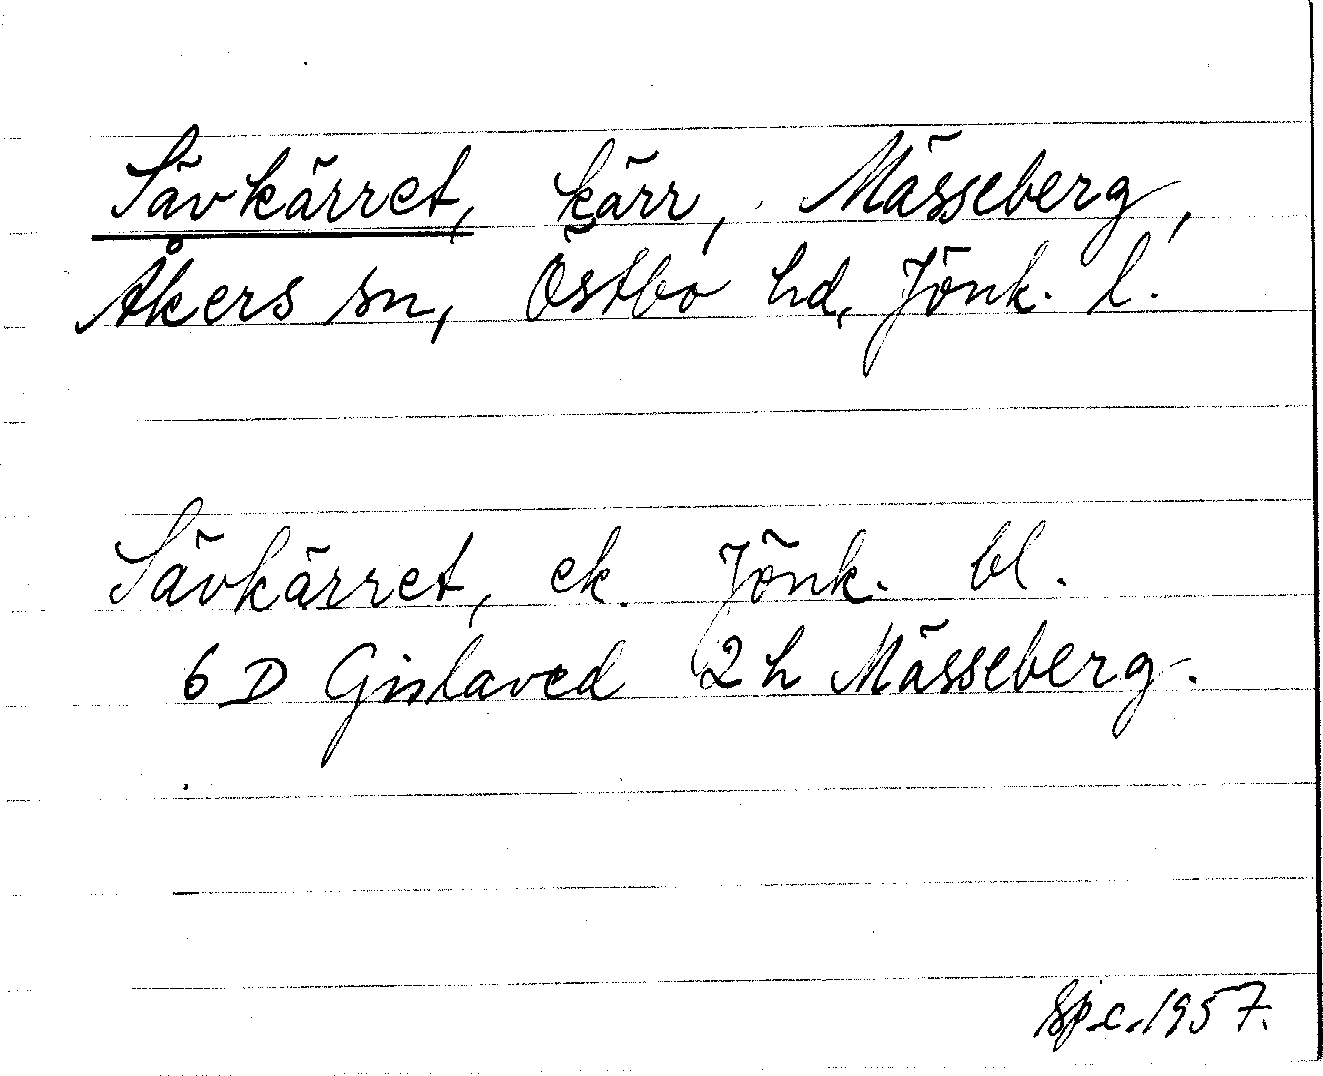 Sävkärret, kärr, Mässeberg,
Åkers sn, Östbo hd, Jönk. l.
Sävkärret, ek. Jönk. bl.
6 D Gislaved 2 h Mässeberg.
1957.